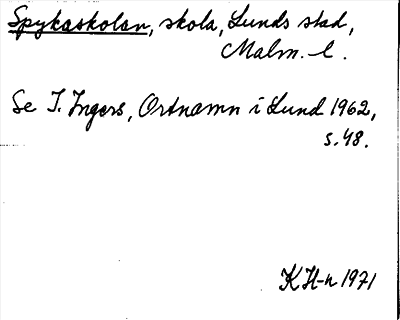 Spykaskolan, skola, Lunds stad,
Malm. l.
Se I. Ingers, Ortnamn i Lund 1962,
s. 48.
KH-n 1971